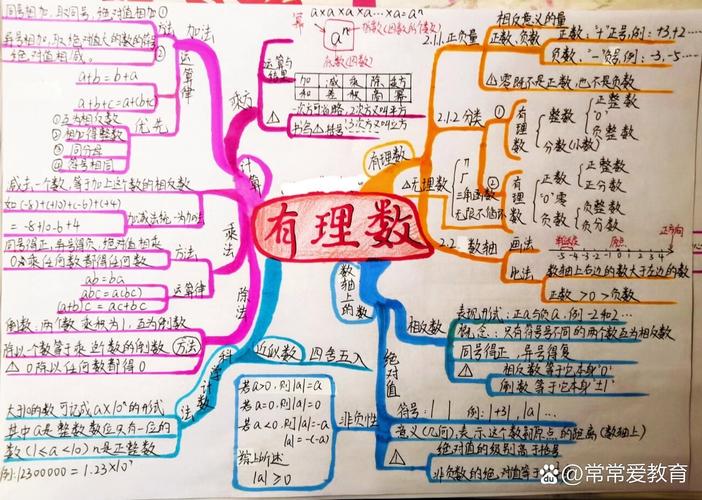 有理数
同号相加,取同号,绝对值相加
异号相加,取绝对值大的数的符号
绝对值相减。
方法
加法
a+b=b+a
a+b+c=a+(b+c)
运算律
①互为相反数
②相加得整数
③同分母
④符号相同
优先
减去一个数,等于加上这个数的相反数
如(-8)+(+10)+(-6)+(+4)
=-8+10-6+4
加减法统一为加法
同号得正,异号得负,绝对值相乘
0乘任何数都得任何数
方法
ab=ba
abc=a(bc)
(a+b)c=ac+bc
运算律
乘法
倒数:两个数乘积为1,互为倒数
除以一个数等于乘这个数的倒数
方法
△0除以任何数都得0
除法
计算
大于10的数可记成a×10ⁿ的形式
其中a是整数数位只有一位的
数(1≤a<10)n是正整数
例:12300000=1.23×10⁷
科学计数法
近似数
四舍五入
a×a×a×a…×a=aⁿ
幂
aⁿ
指数(因数的个数)
底数(因数)
运算与结果
加 减 乘 除 乘方
和 差 积 商 幂
△
一次方可省略,2次方又叫平方
3次方又叫立方
乘方
有理数
2.1.1.正负量
相反意义的量
正数、负数
正数:"+"正号,例:+3,+2…
负数:"-"负号,例:-3,-5…
△零既不是正数,也不是负数
2.1.2分类
①
有理数
整数
正整数
'0'
负整数
分数(小数)
②
有理数
正数
正整数
正分数
'0'零
负数
负整数
负分数
△无理数
π
三角函数
无限不循环
2.2.数轴
画法
单位长度
原点
正方向
-5 -4 -3 -2 -1 0 1 2 3 4
比法
数轴上右边的数大于左边的数
正数>0>负数
数轴上的数
相反数
表现形式:正a与负a,例-2和2…
概念:只有符号不同的两个数互为相反数
同号得正,异号得负
△
相反数等于它本身'0'
倒数等于它本身'±1'
绝对值
符号:| | 例:|+3|,|a|…
意义(几何):表示这个数到原点的距离(数轴上)
△
绝对值的级别高于括号
非负数的绝对值等于
非负性
若a>0,则|a|=a
若a=0,则|a|=0
若a<0,则|a|=-a
|a|=-(-a)
综上所述
|a|≥0
Bai du
@常常爱教育